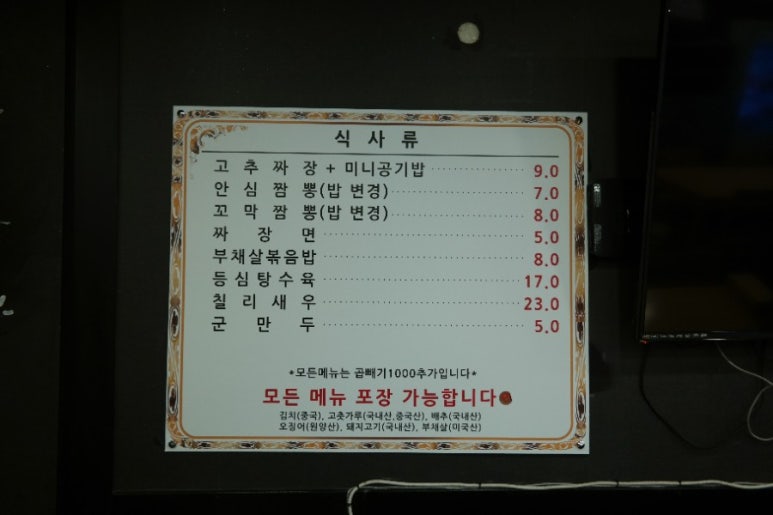 식사류
고추짜장 + 미니공기밥 9.0
안심짬뽕(밥 변경) 7.0
꼬막짬뽕(밥 변경) 8.0
짜장면 5.0
부채살볶음밥 8.0
등심탕수육 17.0
칠리새우 23.0
군만두 5.0
*모든메뉴는 곱빼기1000추가입니다*
모든 메뉴 포장 가능합니다
김치(중국), 고춧가루(국내산,중국산), 배추(국내산)
오징어(원양산), 돼지고기(국내산), 부채살(미국산)